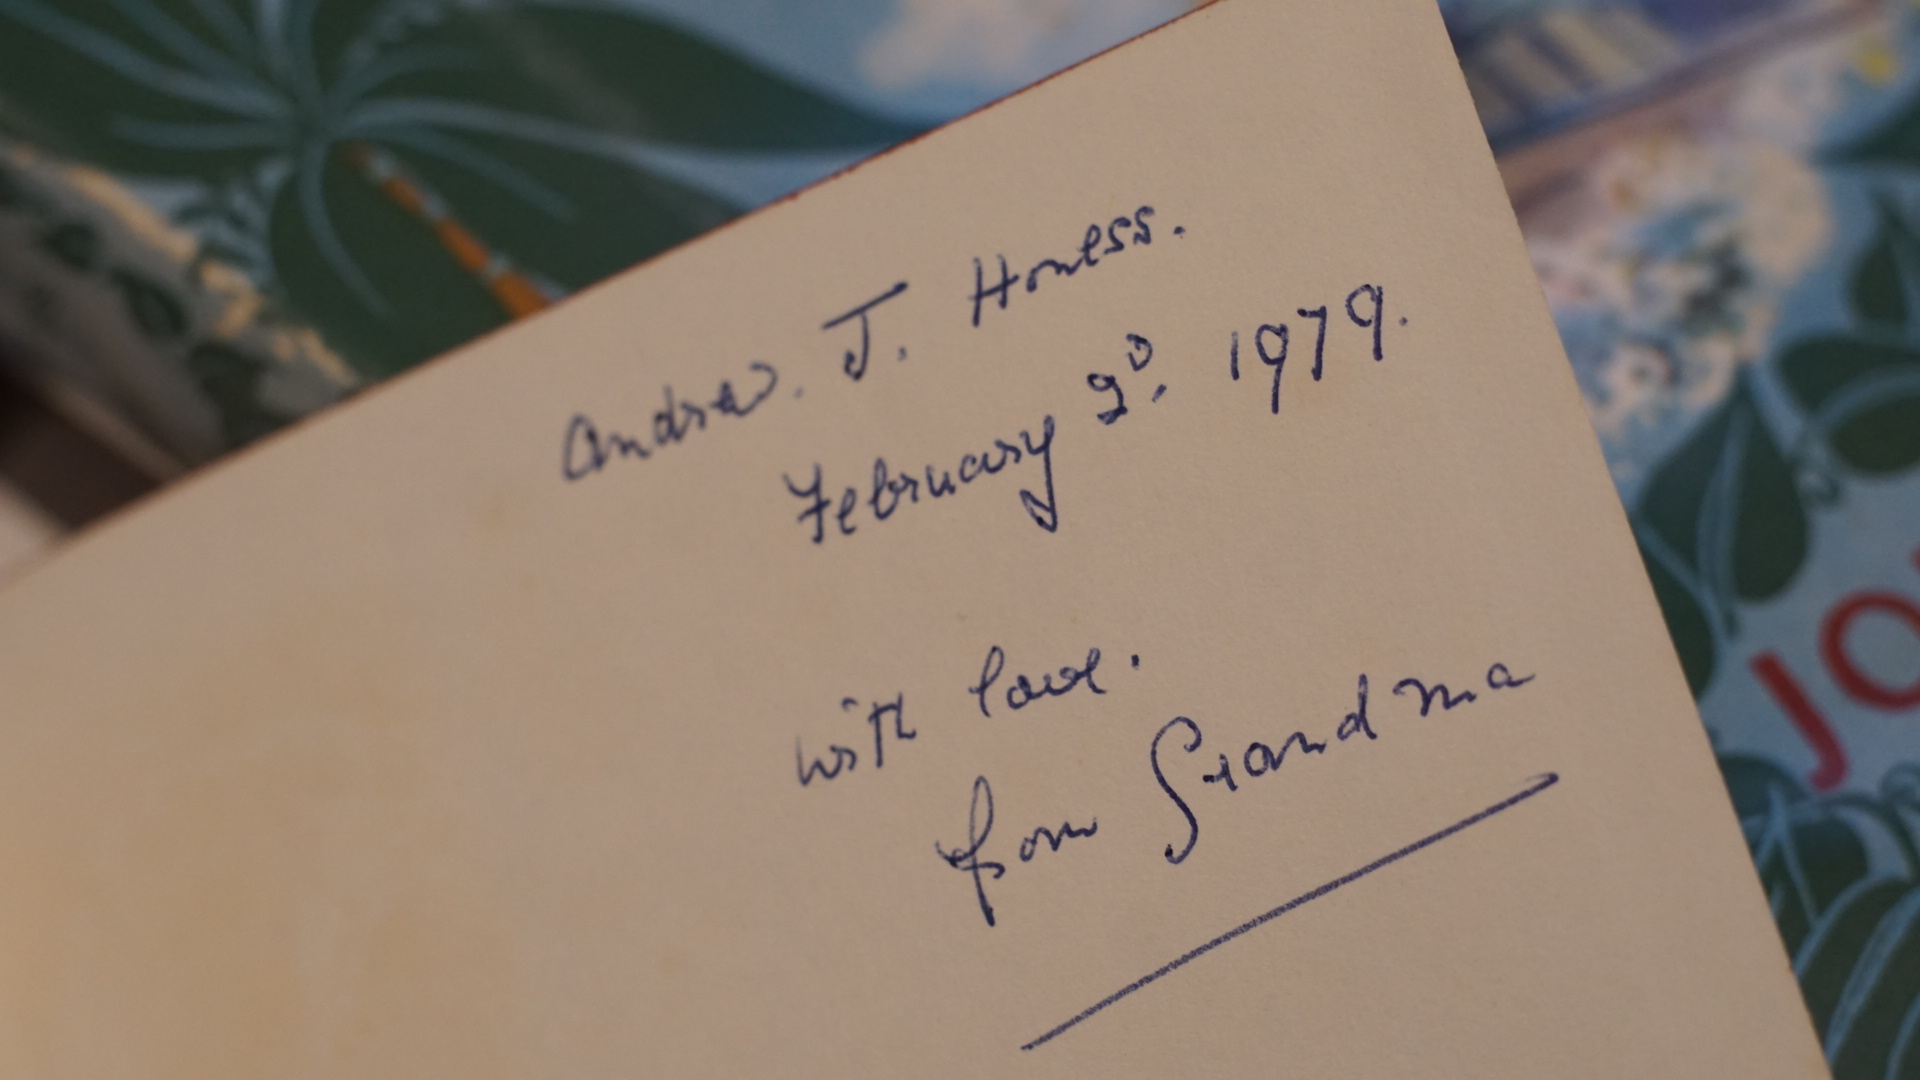 Andrew. J. Honess.
February 2D. 1979.
with love.
from Grandma
JO